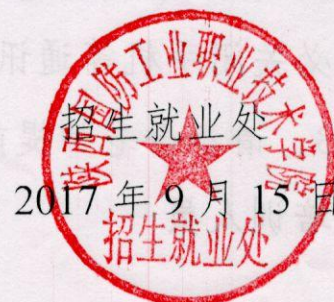 陕西国防工业职业技术学院
招生就业处
2017 年 9 月 15 日
招生就业处